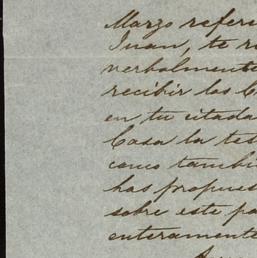 Marzo refer
Juan, te r
verbalmente
recibir los C
en tu citada
Casa la tes
como tambi
has propues
sobre este pa
enteramente